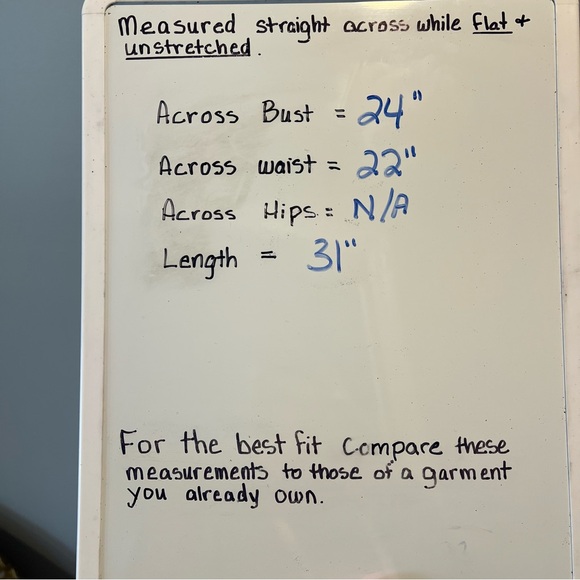 Measured straight across while flat +
unstretched.
Across Bust = 24"
Across waist = 22"
Across Hips = N/A
Length = 31"
For the best fit Compare these
measurements to those of a garment
you already own.